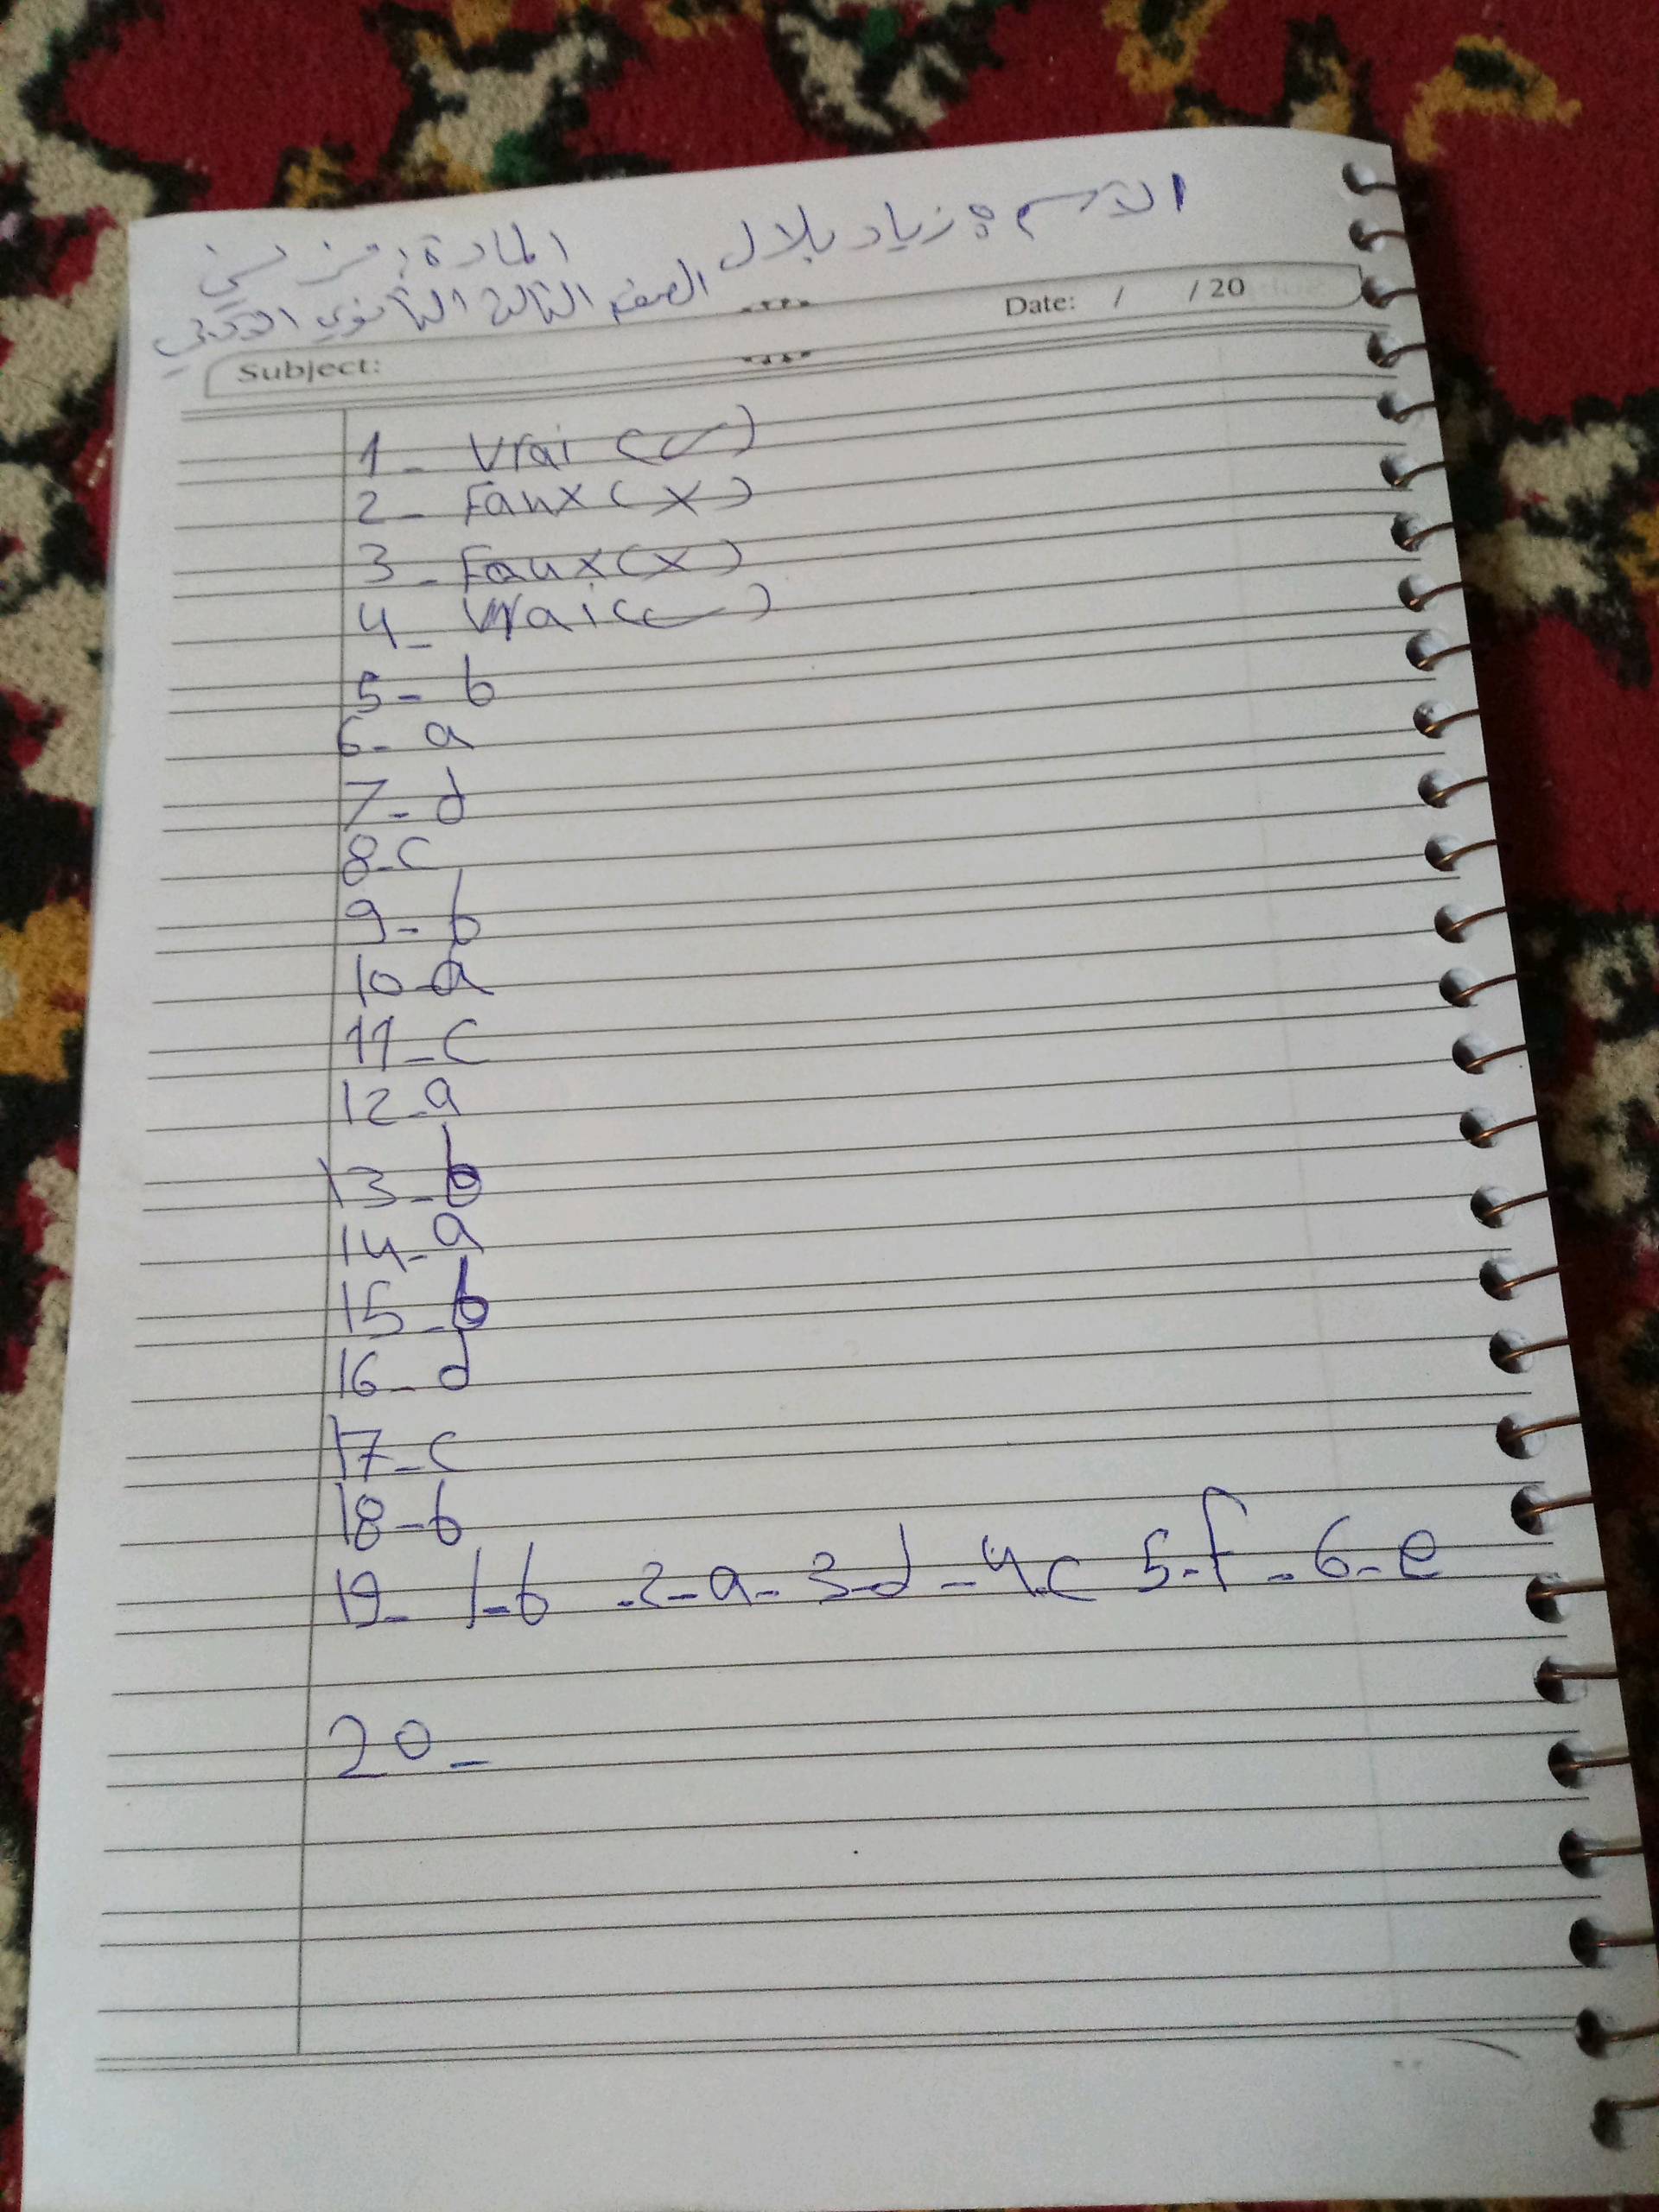 الاسم: زياد بلال المادة: فرنسي
الصف الثالث الثانوي الادبي
Date: / / 20
Subject:
1- Vrai (✓)
2- Faux (X)
3- Faux (X)
4- Vrai (✓)
5- b
6- a
7- d
8- c
9- b
10- a
11- c
12- a
13- b
14- a
15- b
16- d
17- c
18- b
19- 1-b -2-a-3-d-4-c 5-f-6-e
20-